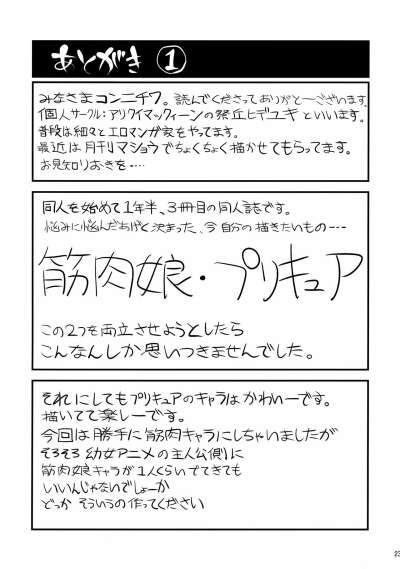 あとがき ①
みなさまコンニチワ。読んでくださってありがとーございます。
個人サークル:アリクイマッフィーンの発丘ヒデユキといいます。
普段は細々とエロマンガ家をやってます。
最近は月刊リマショウでちょくちょく描かせてもらってます。
お見知りおきを…
同人を始めて1年半、3冊目の同人誌です。
悩みに悩んだあげく決まった、今自分の描きたいもの…
筋肉娘・プリキュア
この2つを両立させようとしたら
こんなんしか思いつきませんでした。
それにしてもプリキュアのキャラはかわいーです。
描いてて楽しーです。
今回は勝手に筋肉キャラにしちゃいましたが
そろそろ幼女アニメの主人公側に
筋肉娘キャラが1人くらいでてきても
いいんじゃないでしょーか
どっか そういうの作ってください
23